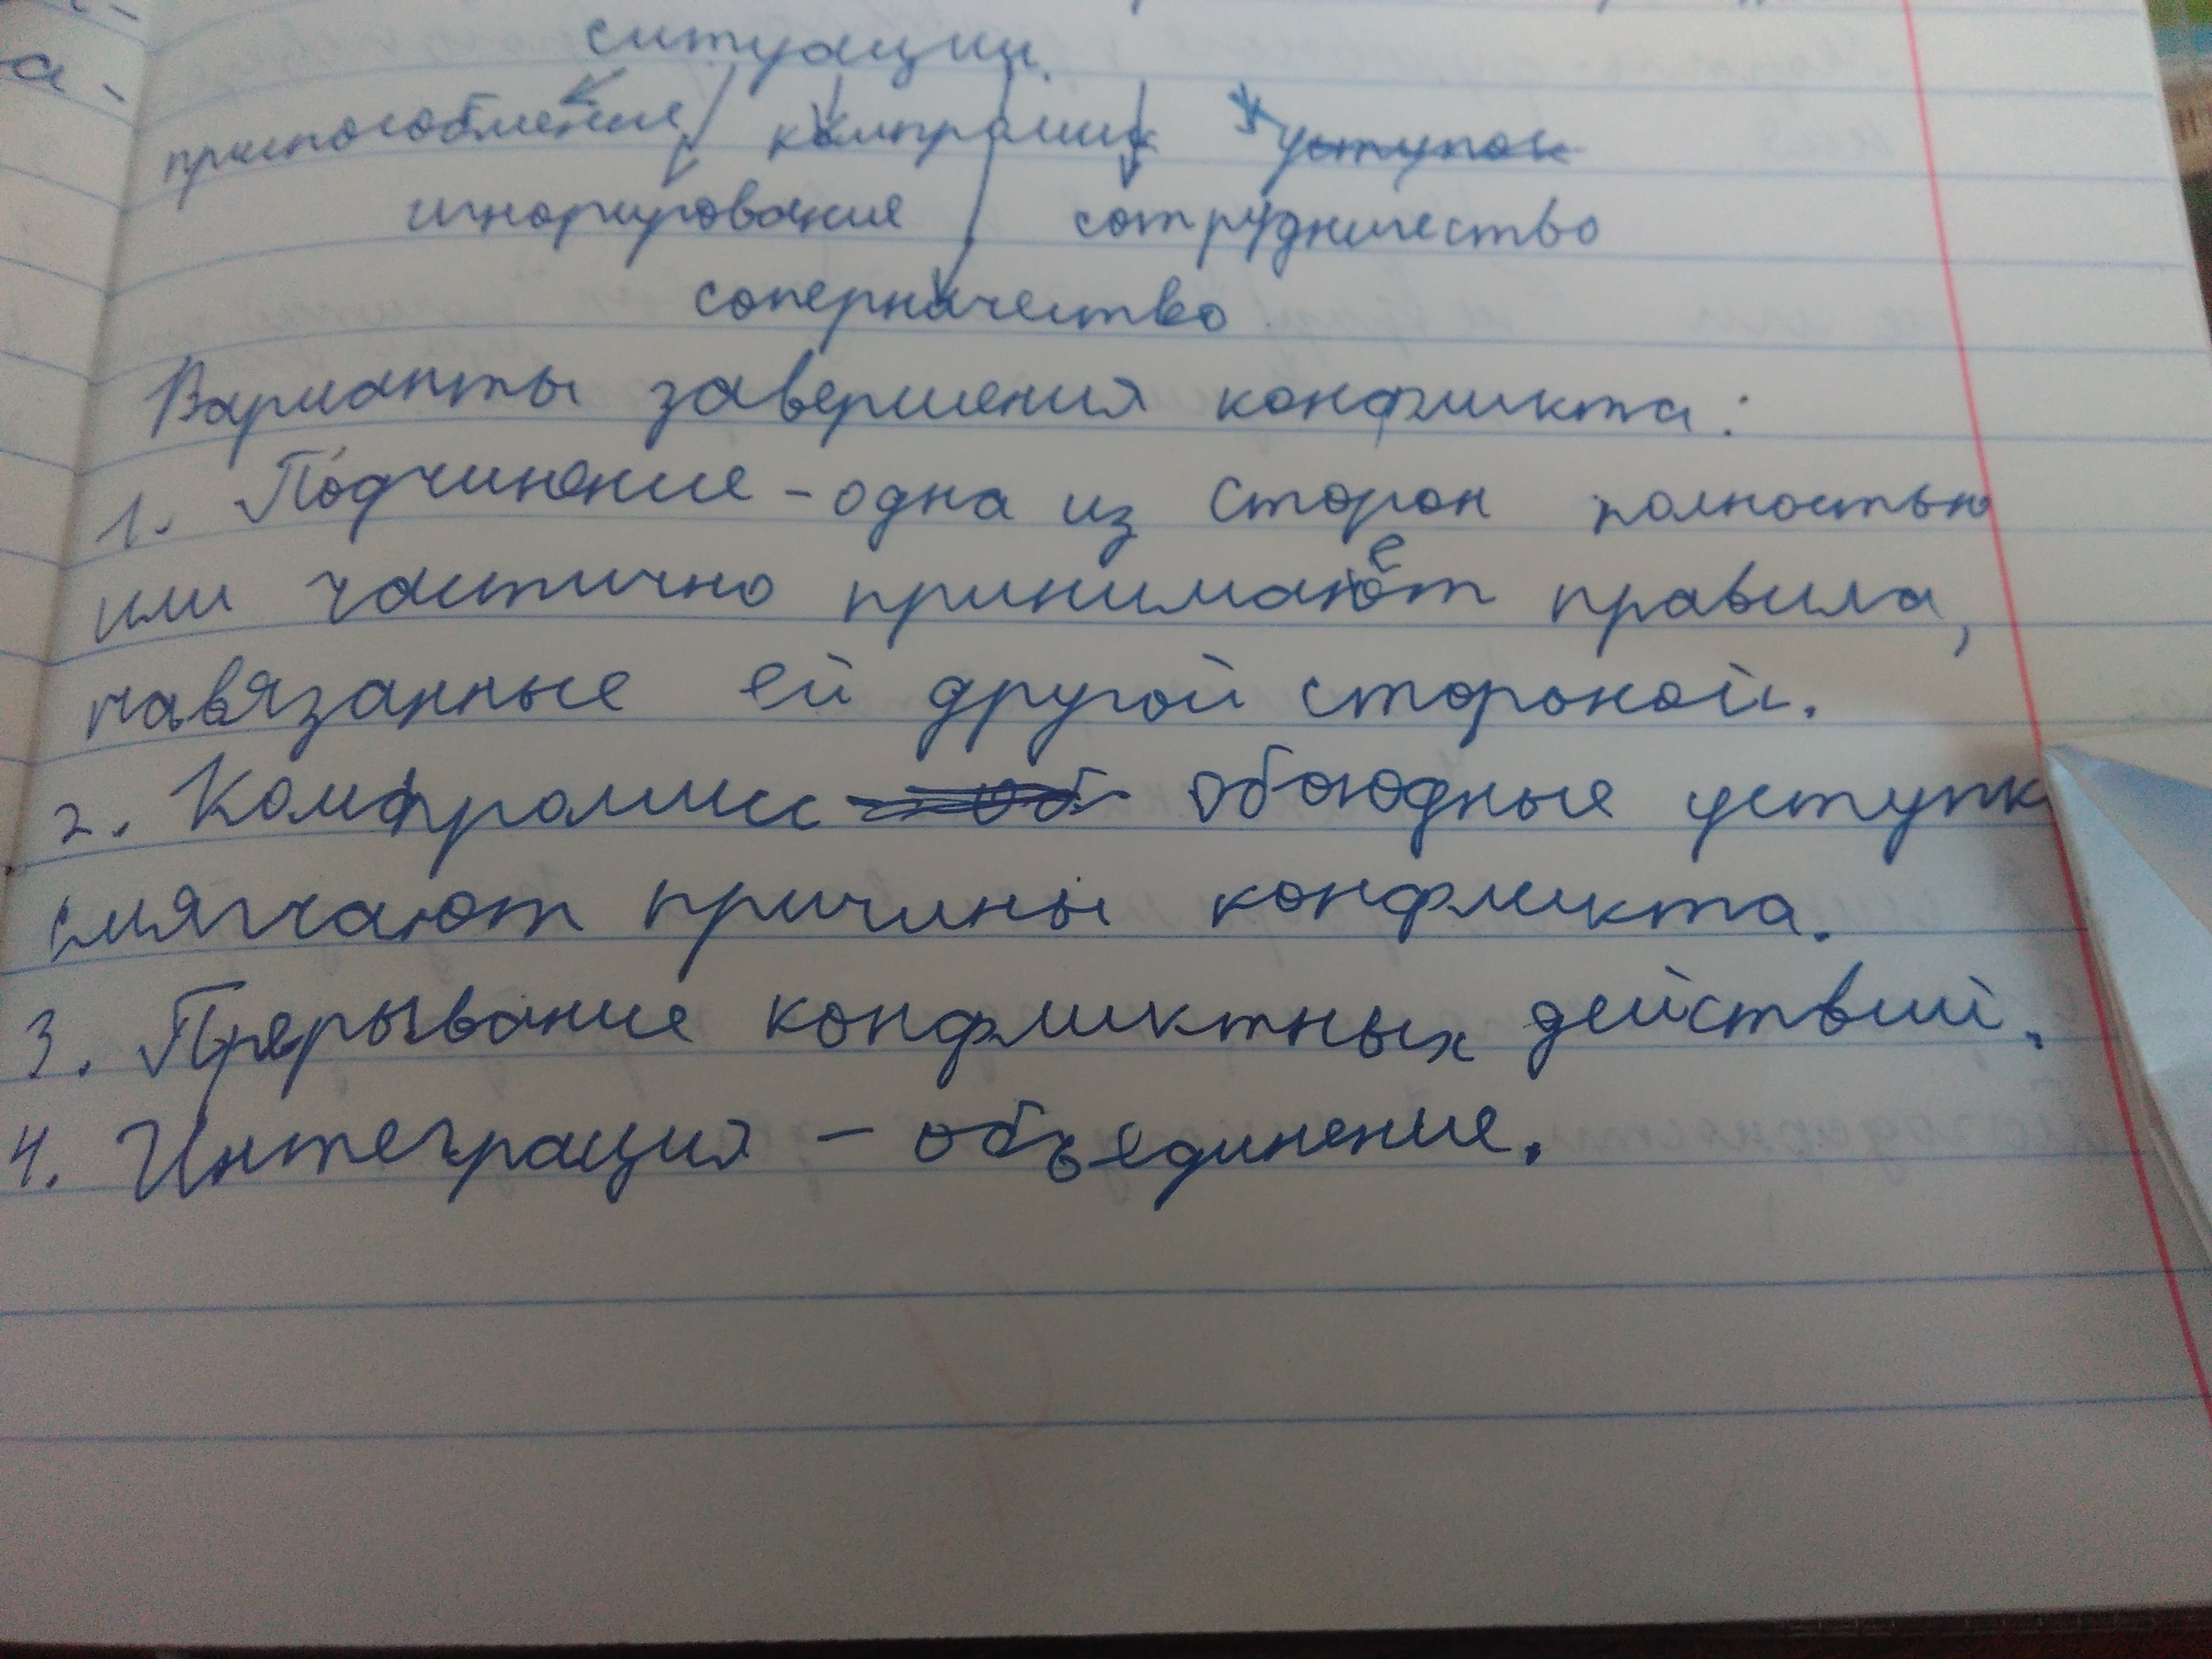 ситуации.
приспособление компромисс уступок
игнорирование сотрудничество
соперничество
Варианты завершения конфликта:
1. Подчинение - одна из сторон полностью
или частично принимает правила,
навязанные ей другой стороной.
2. Компромисс обоюдные уступк
смягчают причины конфликта.
3. Прерывание конфликтных действий.
4. Интеграция - объединение.